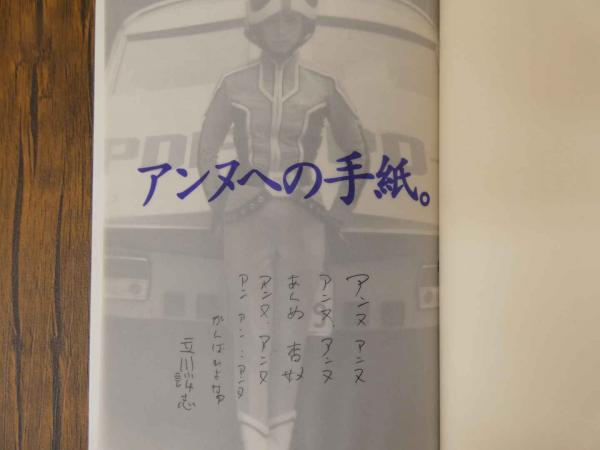 アンヌへの手紙。
アンヌ アンヌ
アンヌ、アンヌ
あんぬ 杏奴
アンヌ、アンヌ
アン アン:アンヌ
がんばれよな
立川談志